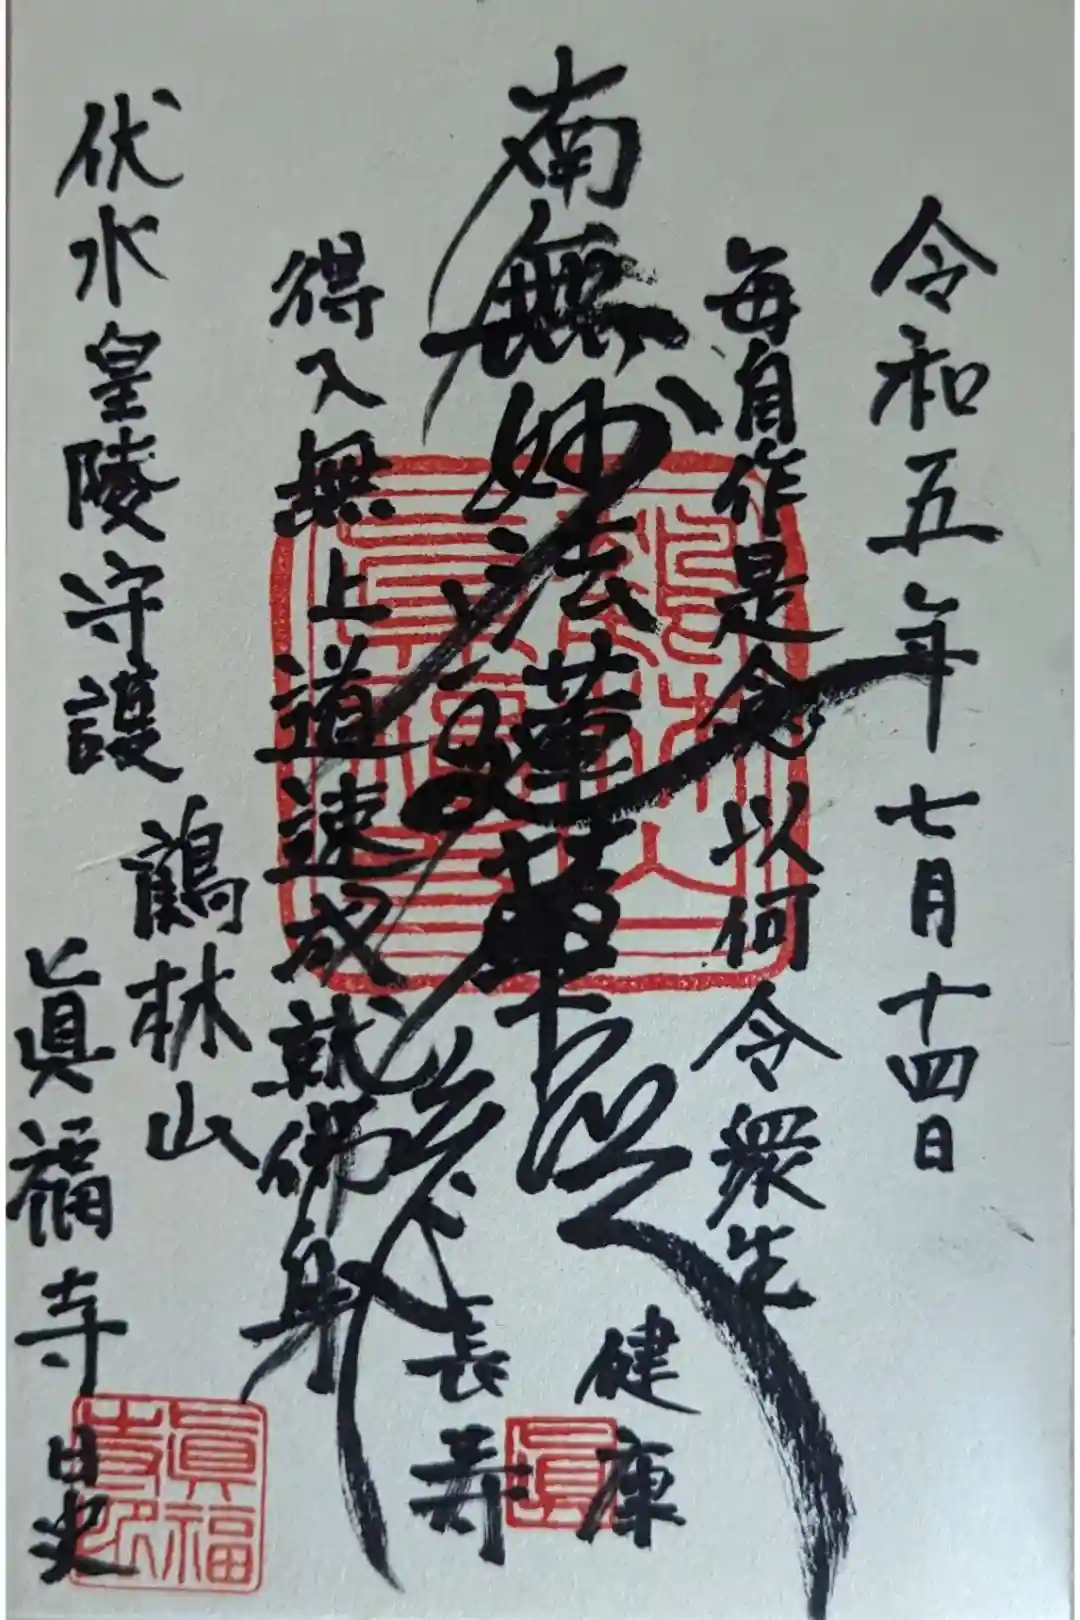 令和五年七月十四日
毎自作是念以何令衆生
健康
南無妙法蓮華経
長寿
得入無上道速成就佛身
伏水皇陵守護
鶴林山
眞福寺日史
眞福